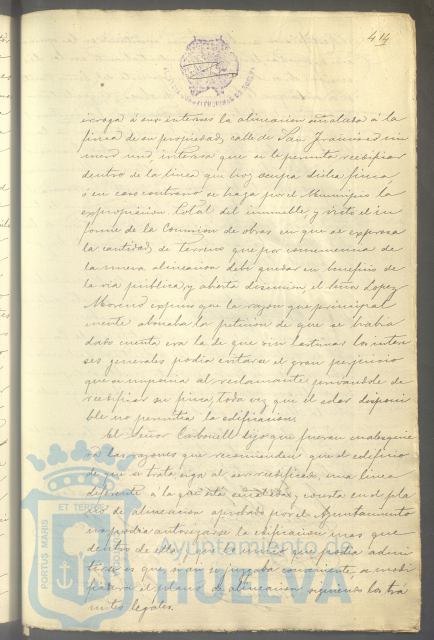 44
irroga á sus intereses la alineacion señalada á la
finca de su propiedad, calle de San Francisco nú
mero uno, interesa que se le permita reedificar
dentro de la linea que hoy ocupa dicha finca
ó en caso contrario se haga por el Municipio la
expropiacion total del inmueble, y visto el in
forme de la Comision de obras en que se expresa
la cantidad de terreno que por consecuencia de
la nueva alineacion debe quedar en beneficio de
la via publica, y abierta discusion, el Señor Lopez
Moreno expuso que la razon que principal
mente abonaba la peticion de que se habia
dado cuenta era la de que sin lastimar los inter
eses generales podia evitarse el gran perjuicio
que se imponia al reclamante privandole de
reedificar su finca, toda vez que el solar disponi
ble no permitia la edificacion.
El Señor Carbonell dijo que fueran cualesquie
ra las razones que recomienden que el edificio
de que se trata siga al ser reedificado, una linea
diferente á la que está señalada y consta en el pla
no de alineacion aprobado por el Ayuntamiento
no podia autorizarse la edificacion mas que
dentro de ella, y que lo unico que podia admi
tirse es que si asi se juzgaba conveniente, se modi
ficara el plano de alineacion siguiendo los trá
mites legales.
PORTUS MARIS
ET TERRAE
Ayuntamiento de
HUELVA